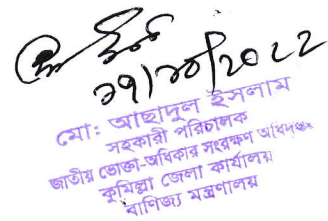 ১৭/১০/2022
মো: আছাদুল ইসলাম
সহকারী পরিচালক
জাতীয় ভোক্তা-অধিকার সংরক্ষণ অধিদপ্তর
কুমিল্লা জেলা কার্যালয়
বাণিজ্য মন্ত্রণালয়